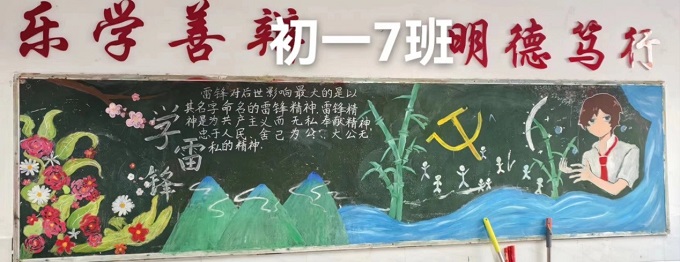 乐学善辩 明德笃行
初一7班
学雷锋
雷锋对后世影响最大的是以
其名字命名的雷锋精神,雷锋精
神是为共产主义而无私奉献精神,
忠于人民、舍己为公、大公无
私的精神.